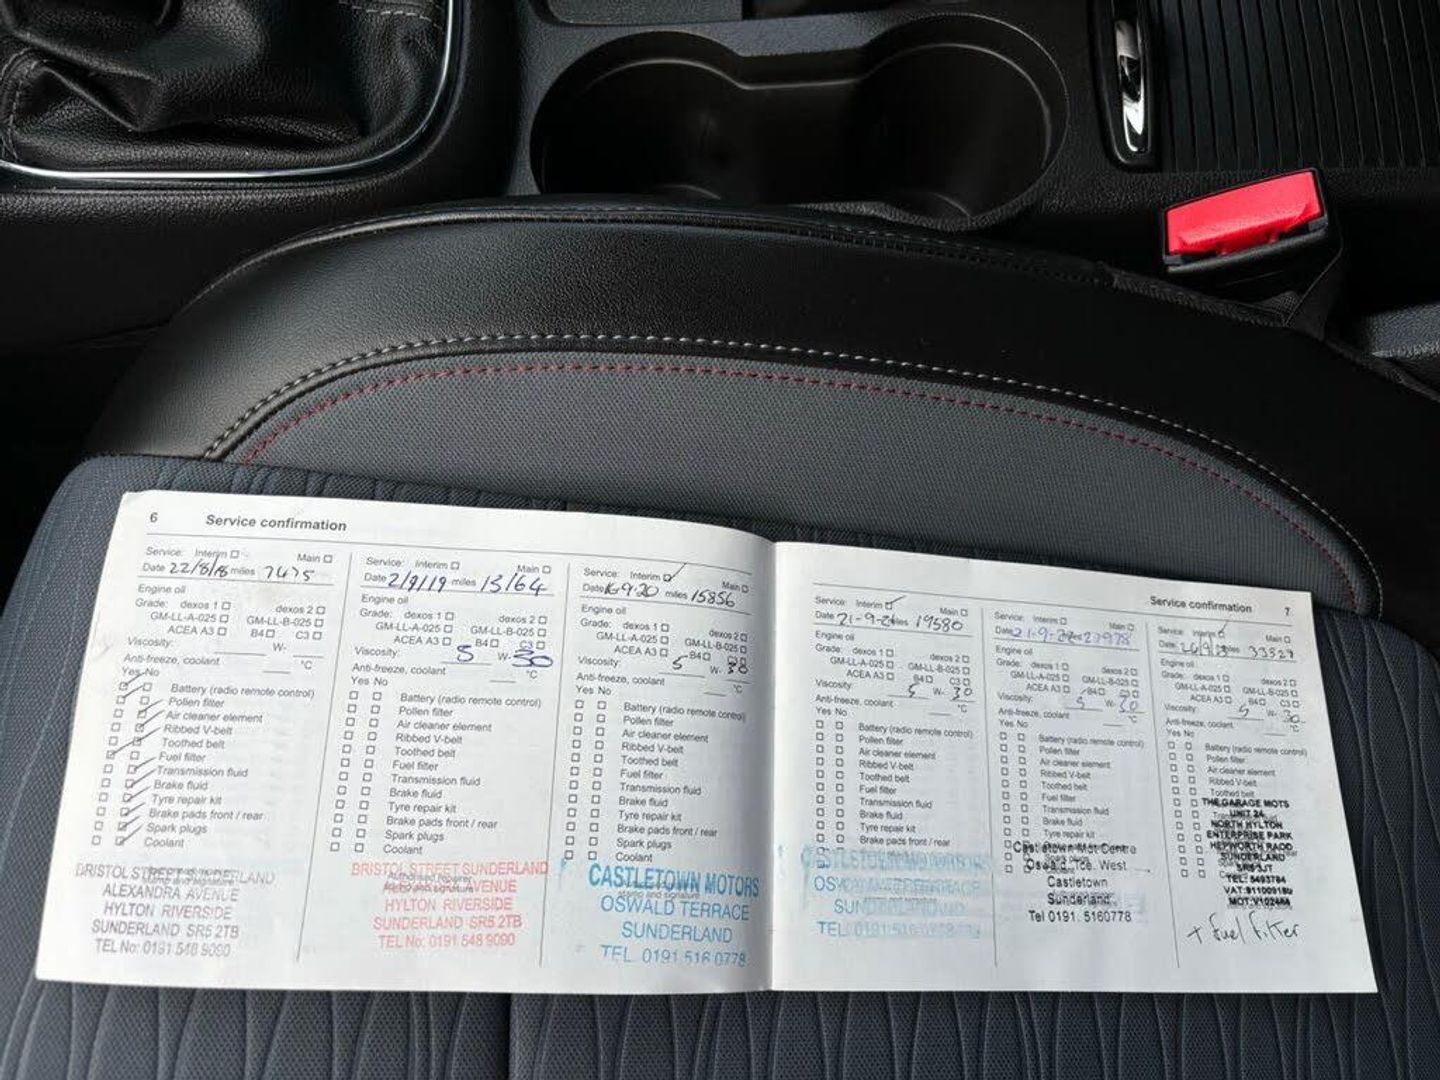 6 Service confirmation
Service: Interim Main
Date 22/8/18 miles 7475
Engine oil
Grade: dexos 1 dexos 2
GM-LL-A-025 GM-LL-B-025
ACEA A3 B4 C3
Viscosity: W-
Anti-freeze, coolant °C
Yes No
Battery (radio remote control)
Pollen filter
Air cleaner element
Ribbed V-belt
Toothed belt
Fuel filter
Transmission fluid
Brake fluid
Tyre repair kit
Brake pads front / rear
Spark plugs
Coolant
BRISTOL STREET SUNDERLAND
ALEXANDRA AVENUE
HYLTON RIVERSIDE
SUNDERLAND SR5 2TB
TEL No: 0191 548 9090
Service: Interim Main
Date 2/9/19 miles 13164
Engine oil
Grade: dexos 1 dexos 2
GM-LL-A-025 GM-LL-B-025
ACEA A3 B4 C3
Viscosity: 5 W- 30
Anti-freeze, coolant °C
Yes No
Battery (radio remote control)
Pollen filter
Air cleaner element
Ribbed V-belt
Toothed belt
Fuel filter
Transmission fluid
Brake fluid
Tyre repair kit
Brake pads front / rear
Spark plugs
Coolant
BRISTOL STREET SUNDERLAND
AVENUE
HYLTON RIVERSIDE
SUNDERLAND SR5 2TB
TEL No: 0191 548 9090
Service: Interim Main
Date 16-9-20 miles 15856
Engine oil
Grade: dexos 1 dexos 2
GM-LL-A-025 GM-LL-B-025
ACEA A3 B4
Viscosity: 5 W- 30
Anti-freeze, coolant °C
Yes No
Battery (radio remote control)
Pollen filter
Air cleaner element
Ribbed V-belt
Toothed belt
Fuel filter
Transmission fluid
Brake fluid
Tyre repair kit
Brake pads front / rear
Spark plugs
Coolant
CASTLETOWN MOTORS
OSWALD TERRACE
SUNDERLAND
TEL. 0191 516 0778
Service confirmation 7
Service: Interim Main
Date 21-9-21 miles 19580
Engine oil
Grade: dexos 1 dexos 2
GM-LL-A-025 GM-LL-B-025
ACEA A3 B4 C3
Viscosity: 5 W- 30
Anti-freeze, coolant °C
Yes No
Battery (radio remote control)
Pollen filter
Air cleaner element
Ribbed V-belt
Toothed belt
Fuel filter
Transmission fluid
Brake fluid
Tyre repair kit
Brake pads front / rear
Service: Interim Main
Engine oil
Grade: dexos 1 dexos 2
GM-LL-A-025 GM-LL-B-025
ACEA A3 B4
Viscosity: 5 W- 30
Anti-freeze, coolant °C
Yes No
Battery (radio remote control)
Pollen filter
Air cleaner element
Ribbed V-belt
Toothed belt
Fuel filter
Transmission fluid
Brake fluid
Tyre repair kit
Castletown Mot Centre
Oswald Tce. West
Castletown
Sunderland
Tel 0191. 5160778
Service: Interim Main
Date: miles 33529
Engine oil
Grade: dexos 1 dexos 2
GM-LL-A-025 GM-LL-B-025
ACEA A3 B4 C3
Viscosity: 5 W- 30
Anti-freeze, coolant °C
Yes No
Battery (radio remote control)
Pollen filter
Air cleaner element
Ribbed V-belt
Toothed belt
THE GARAGE MOTS
UNIT 24
NORTH HYLTON
ENTERPRISE PARK
HEPWORTH ROAD
SUNDERLAND
SR5 3JT
TEL: 5493784
+ fuel filter